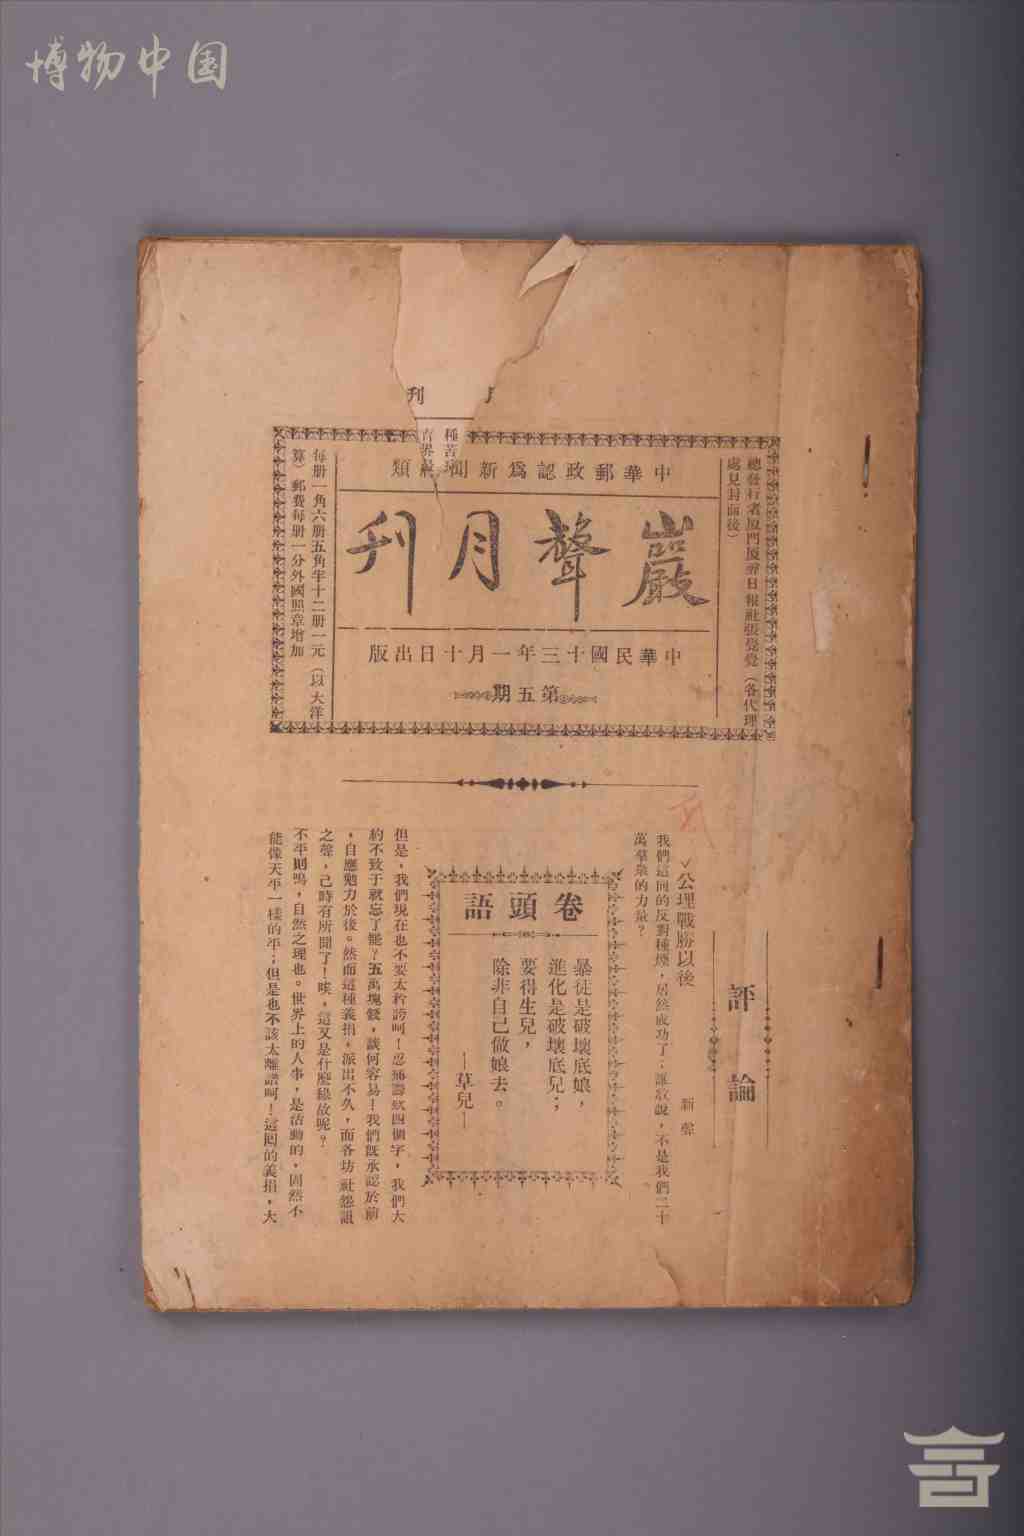 博物中国
刊
種苦
育界
中華郵政認爲新聞類
總發行者厦門厦聲日報社張覺覺（各代理
處見封面後）
巖聲月刊
中華民國十三年一月十日出版
第五期
每册一角六册五角年十二册一元（以大洋
算）郵費每册一分外國照章增加
評論
公理戰勝以後
新聲
我們這回的反對種煙，居然成功了；誰敢說，不是我們二十
萬羣衆的力量？
卷頭語
暴徒是破壞底娘，
進化是破壞底兒；
要得生兒，
除非自己做娘去。
—草兒—
但是，我們現在也不要太矜誇呵！忍痛籌欵四個字，我們大
約不致于就忘了罷？五萬塊錢，談何容易！我們旣承認於前
，自應勉力於後。然而這種義捐，派出不久，而各坊社怨詛
之聲，已時有所聞了！唉，這又是什麼緣故呢？
不平則鳴，自然之理也。世界上的人事，是活動的，固然不
能像天平一樣的平；但是也不該太離譜呵！這囘的義捐，大